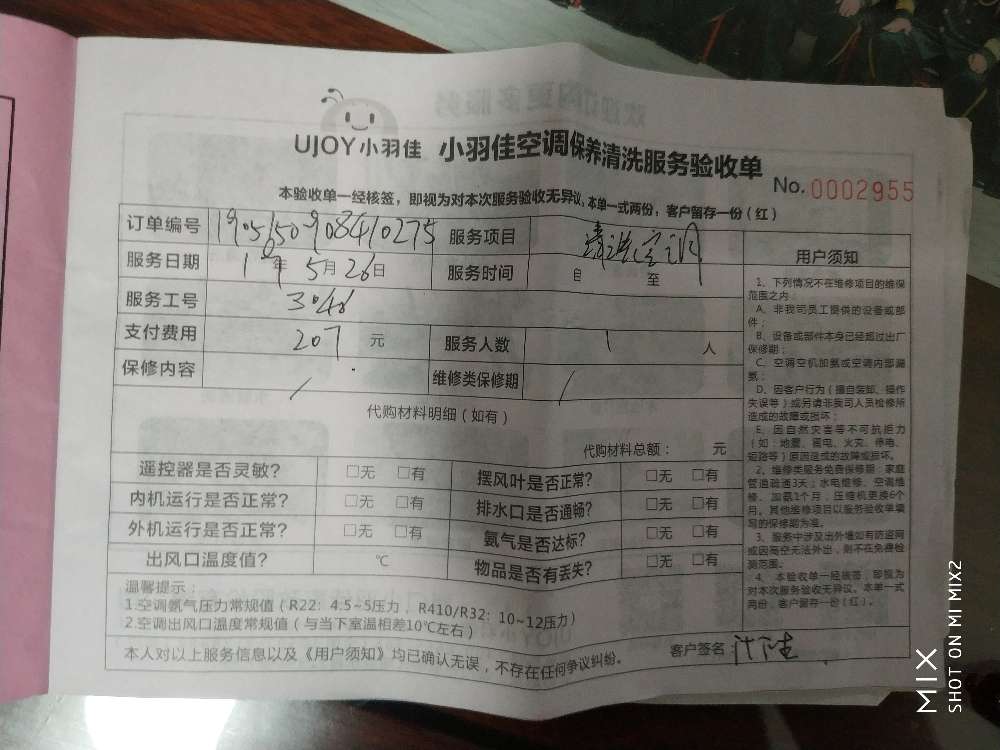 UJOY小羽佳 小羽佳空调保养清洗服务验收单
No. 0002955
本验收单一经核签，即视为对本次服务验收无异议。本单一式两份，客户留存一份（红）
订单编号 1905150908410275 服务项目 清洗空调
服务日期 19年5月26日 服务时间 自 至
服务工号 3046
支付费用 207 元 服务人数 1 人
保修内容 / 维修类保修期 /
代购材料明细（如有）
代购材料总额： 元
遥控器是否灵敏？ □无 □有 摆风叶是否正常？ □无 □有
内机运行是否正常？ □无 □有 排水口是否通畅？ □无 □有
外机运行是否正常？ □无 □有 氨气是否达标？ □无 □有
出风口温度值？ ℃ 物品是否有丢失？ □无 □有
温馨提示：
1.空调氨气压力常规值（R22：4.5~5压力，R410/R32：10~12压力）
2.空调出风口温度常规值（与当下室温相差10℃左右）
本人对以上服务信息以及《用户须知》均已确认无误，不存在任何争议纠纷。
客户签名
用户须知
1、下列情况不在维修项目的维保
范围之内：
A、非我司员工提供的设备或部
件；
B、设备或部件本身已经超过出厂
保修期；
C、空调空机加氨或空调内部漏
氨；
D、因客户行为（擅自装卸、操作
失误等）或另请非我司人员检修所
造成的故障或损坏；
E、因自然灾害等不可抗拒力
（如：地震、雷电、火灾、停电、
短路等）原因造成的故障或损坏。
2、维修类服务免费保修期：家庭
管道疏通3天；水电维修、空调维
修、加氨1个月，压缩机更换6个
月。其他维修项目以服务验收单填
写的保修期为准。
3、服务中涉及出外墙如有防盗网
或因高空无法外出，则不在免费检
测范围。
4、本验收单一经核签，即视为
对本次服务验收无异议。本单一式
两份，客户留存一份（红）。
MIX
SHOT ON MI MIX2